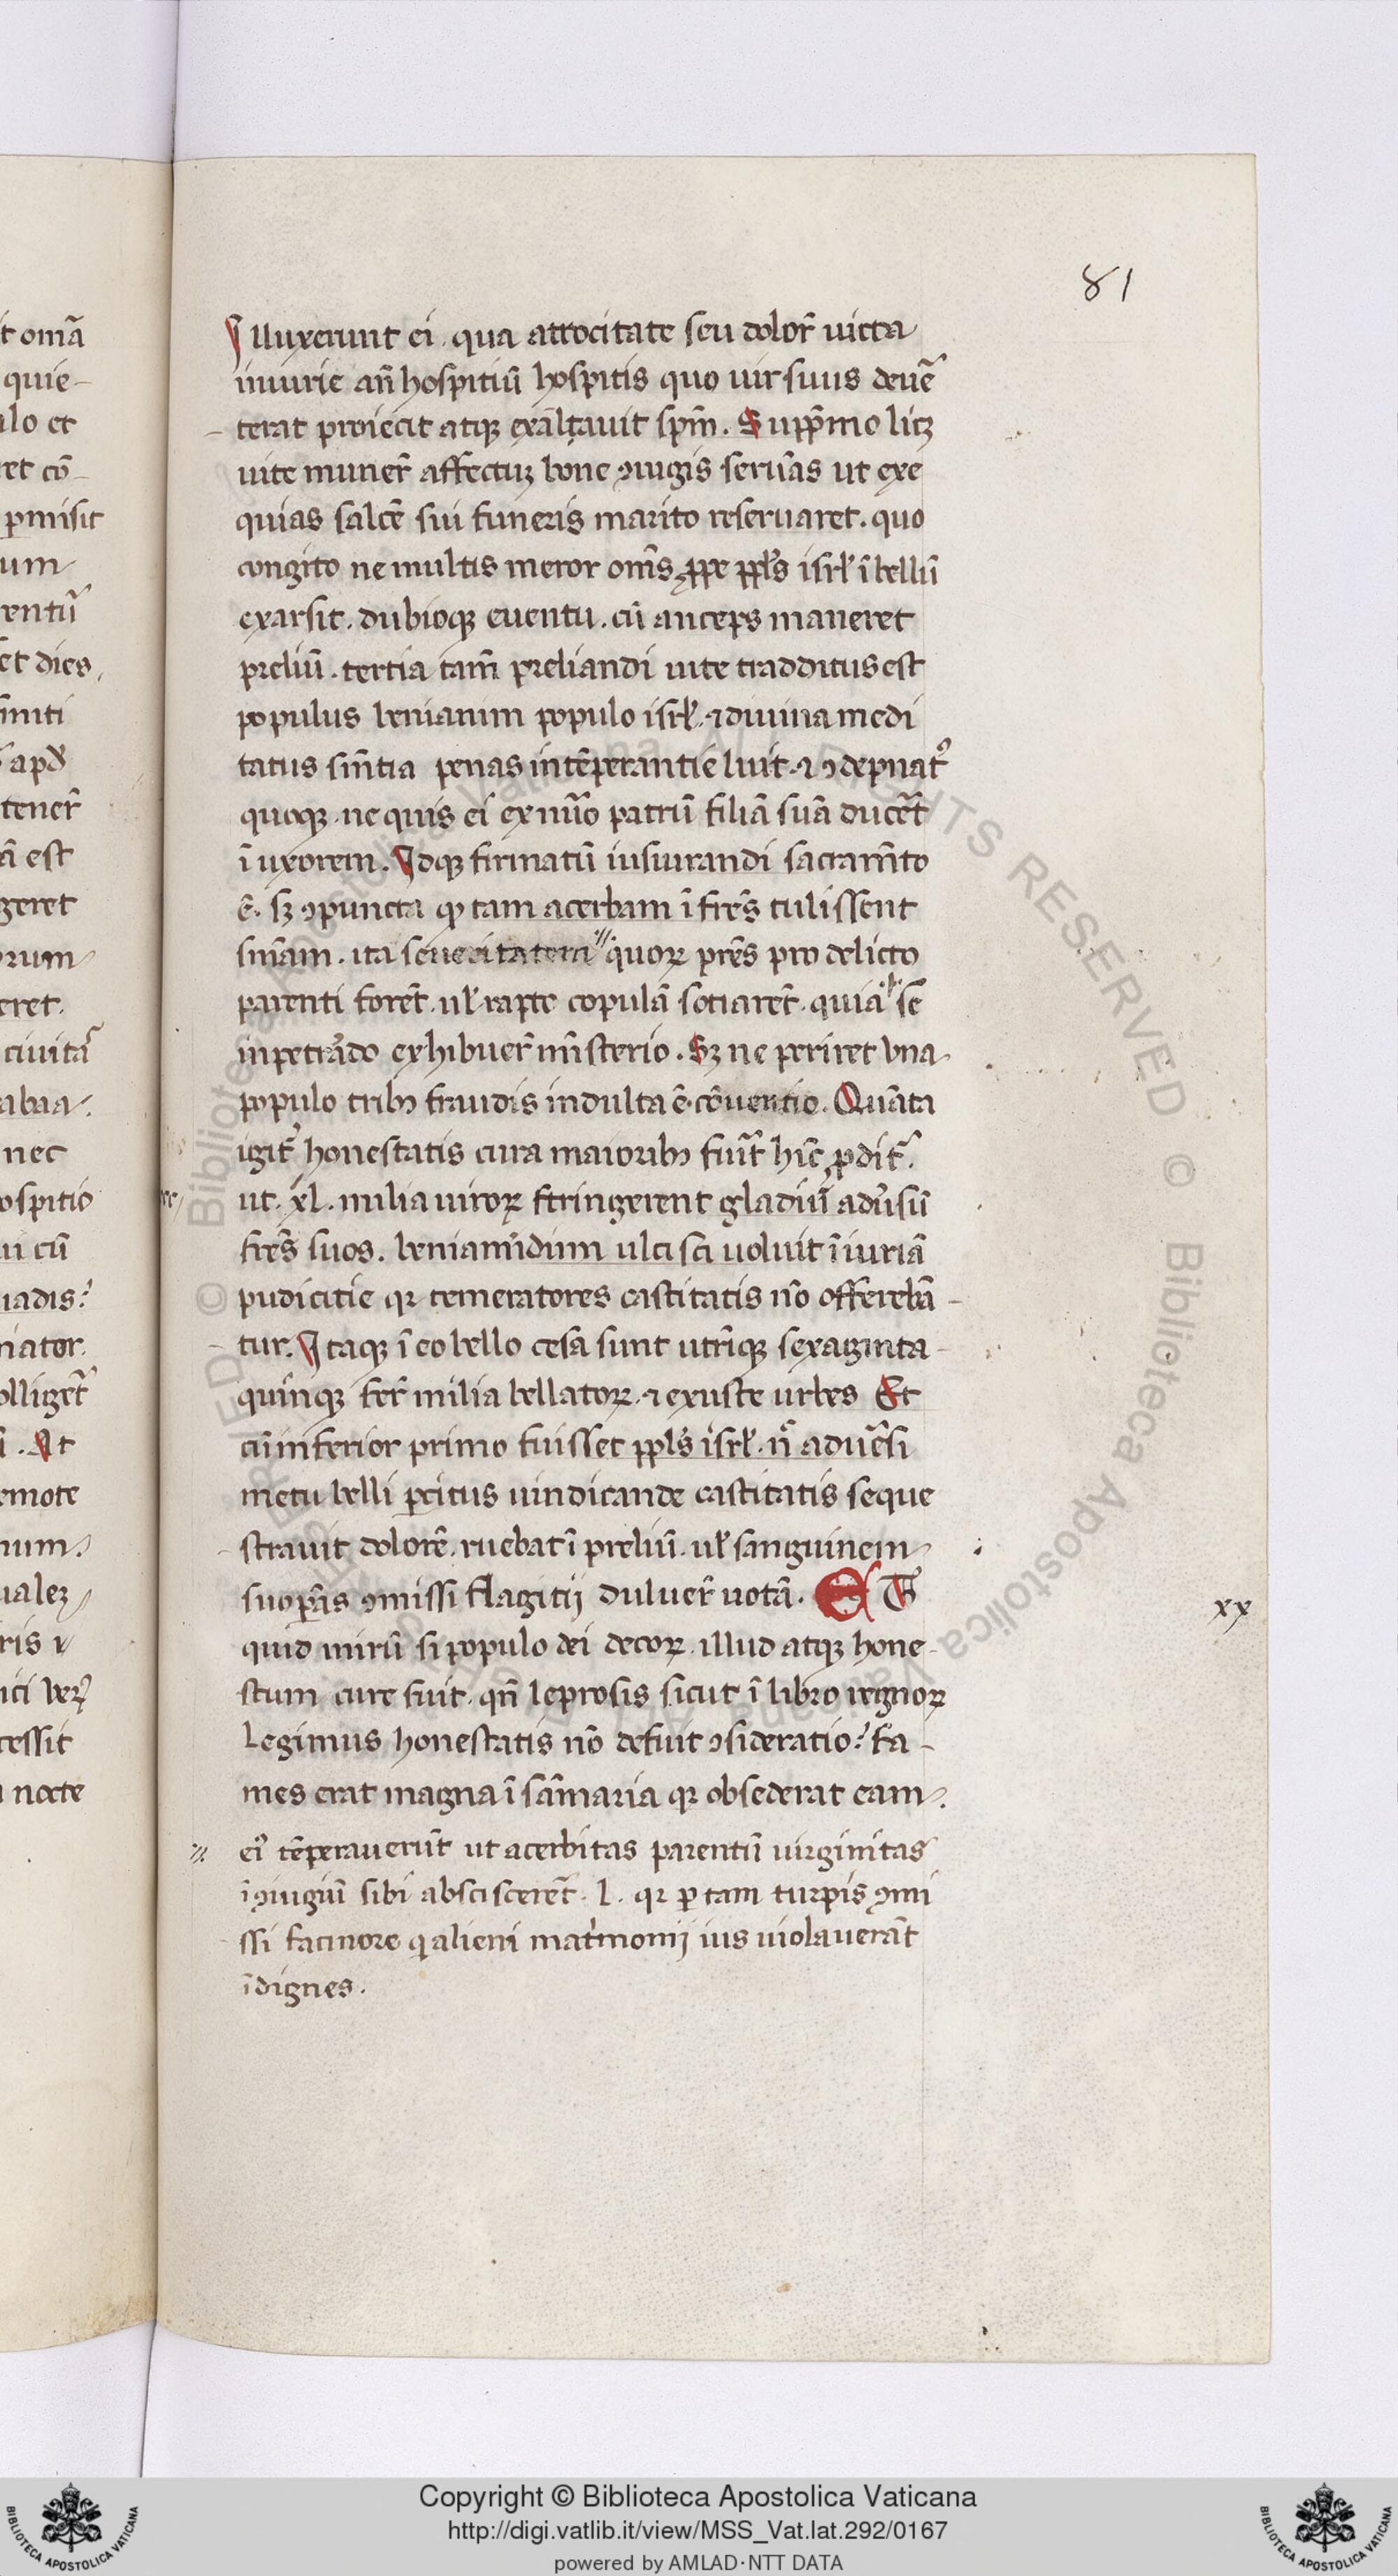 81
Illuxerunt ei. qua atrocitate seu dolor̄ uicta
iniurie an̄ hospitiū hospitis quo uir suus deuē
terat proiecit atqꝫ exāltauit sp̄m. Supp̄mo licꝫ
uite muner̄ affectuꝫ bone ꝯiugis seruās ut exe
quias saltē sui funeris marito reseruaret. quo
congito ne multis meror om̄s ꝓpe ppl̄s isrł ī bellū
exarsit. dubioqꝫ euentu. cū anceps maneret
preliū. tertia tam̄ preliandi uite tradditus est
populus beniamin populo isrł. ⁊ diuina medi
tatus sn̄tia penas intēperantie luit. ⁊ ꝯdepnat᷒
quoqꝫ. ne quis ei ex nūo patrū filiā suā ducēt
ī uxorem. Idqꝫ firmatū iusiurandi sacram̄to
ē. sꝫ ꝯpuncta qꝫ tam acerbam ī fr̄es tulissent
sn̄iam. ita seueritatem quoꝝ pr̄es pro delicto
parenti forēt. ul̄ rapto copulā sotiarēt. quia se
inpetrādo exhibuer̄ min̄sterio. Sꝫ ne periret una
populo tribꝫ fraudis indulta ē. cōuentio. Quāta
igit᷒ honestatis cura maioribꝫ fuīt hic̄ ꝓdit᷒.
ut. xl. milia uiroꝝ stringerent gladiū aduīsū
fr̄es suos. beniam̄idum ulcisci uoluit īiuriā
pudicitie qꝛ temeratores castitatis nō offerebā
tur. Itaqꝫ ī eo bello cesa sunt utriqꝫ sexaginta
quinqꝫ fer̄ milia bellatoꝝ. ⁊ exuste urbes Et
cū inferior primo fuisset ppl̄s isrł. n̄ aduēsi
metu belli ꝑcitus uindicande castitatis seque
strauit dolorē. ruebat ī preliū. ul̄ sanguinem
suo ꝑās ꝯmissi flagitij duluer̄ notā. ET
xx
quid mirū si populo dei decoꝝ. illud atqꝫ hone
stum cure fuit. qn̄ leprosis sicut ī libro regnoꝝ
Legimus honestatis nō defuit ꝯsideratio? fa
mes erat magna ī sāmaria qꝛ obsederat eam.
ei᷒ tēperauerūt ut acerbitas parentū uirginitas
īꝯiugiū sibi absciscerēt. l. qꝛ ꝑ tam turpis ꝯmi
ssi facinore q alieni mat͛monij ius uiolauerāt
īdignes.
Copyright © Biblioteca Apostolica Vaticana
http://digi.vatlib.it/view/MSS_Vat.lat.292/0167
powered by AMLAD·NTT DATA